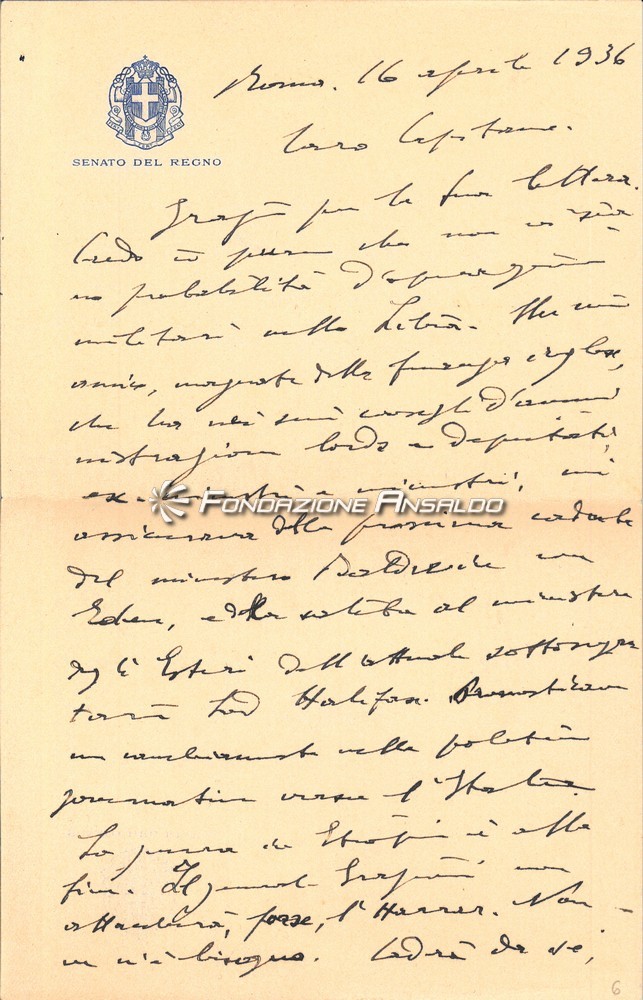 Roma. 16 aprile 1936
SENATO DEL REGNO
Caro Capitano.
Grazie per la sua lettera.
Credo io pure che non vi sia
no probabilità d'operazioni
militari nella Libia. Un mio
amico, magnate della finanza inglese,
che ha nei suoi consigli d'ammi
nistrazione lords e deputati
ex-ministri e ministri, mi
assicurava della prossima caduta
del ministero Baldwin con
Eden, e della salita al ministero
degli Esteri dell'attuale sottosegre
tario Lord Halifax. Pronosticava
un cambiamento nella politica
governativa verso l'Italia.
La guerra in Etiopia è alla
fine. Il general Graziani non
attaccherà, forse, l'Harrar. Non
ve n'è bisogno. Cadrà da sé,
FONDAZIONE ANSALDO
6